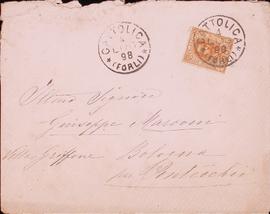 CATTOLICA
98
*(FORLI)*
CATTOLICA
98
(FORLI)
Signor
Giuseppe Marconi
Villa Griffone Bologna
per Pontecchio